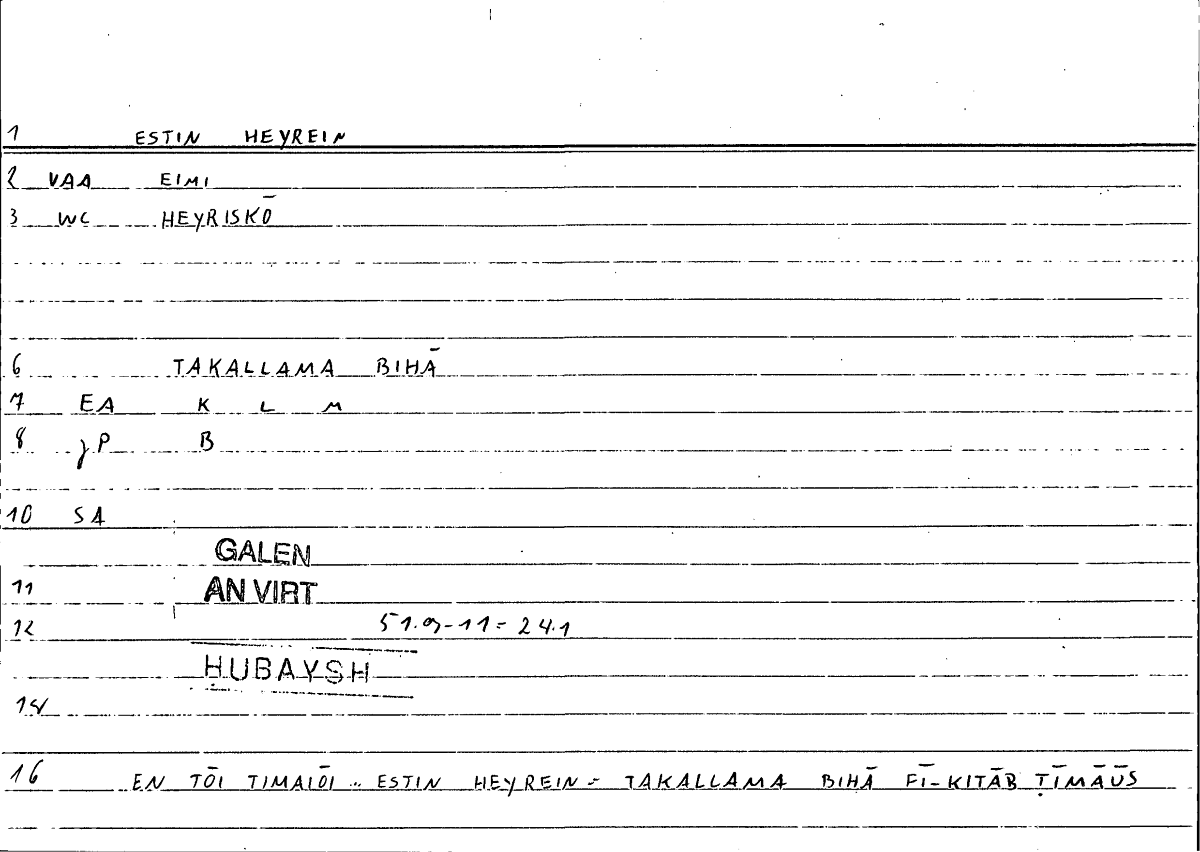 1 ESTIN HEYREIN
2 VAA EIMI
3 WC HEYRISKŌ
6 TAKALLAMA BIHĀ
7 EA K L M
8 JP B
10 SA
GALEN
11 AN VIRT
12 51.9-11= 24.1
HUBAYSH
16 EN TŌI TIMAIŌI .. ESTIN HEYREIN = TAKALLAMA BIHĀ FĪ-KITĀB ṬĪMĀŪS